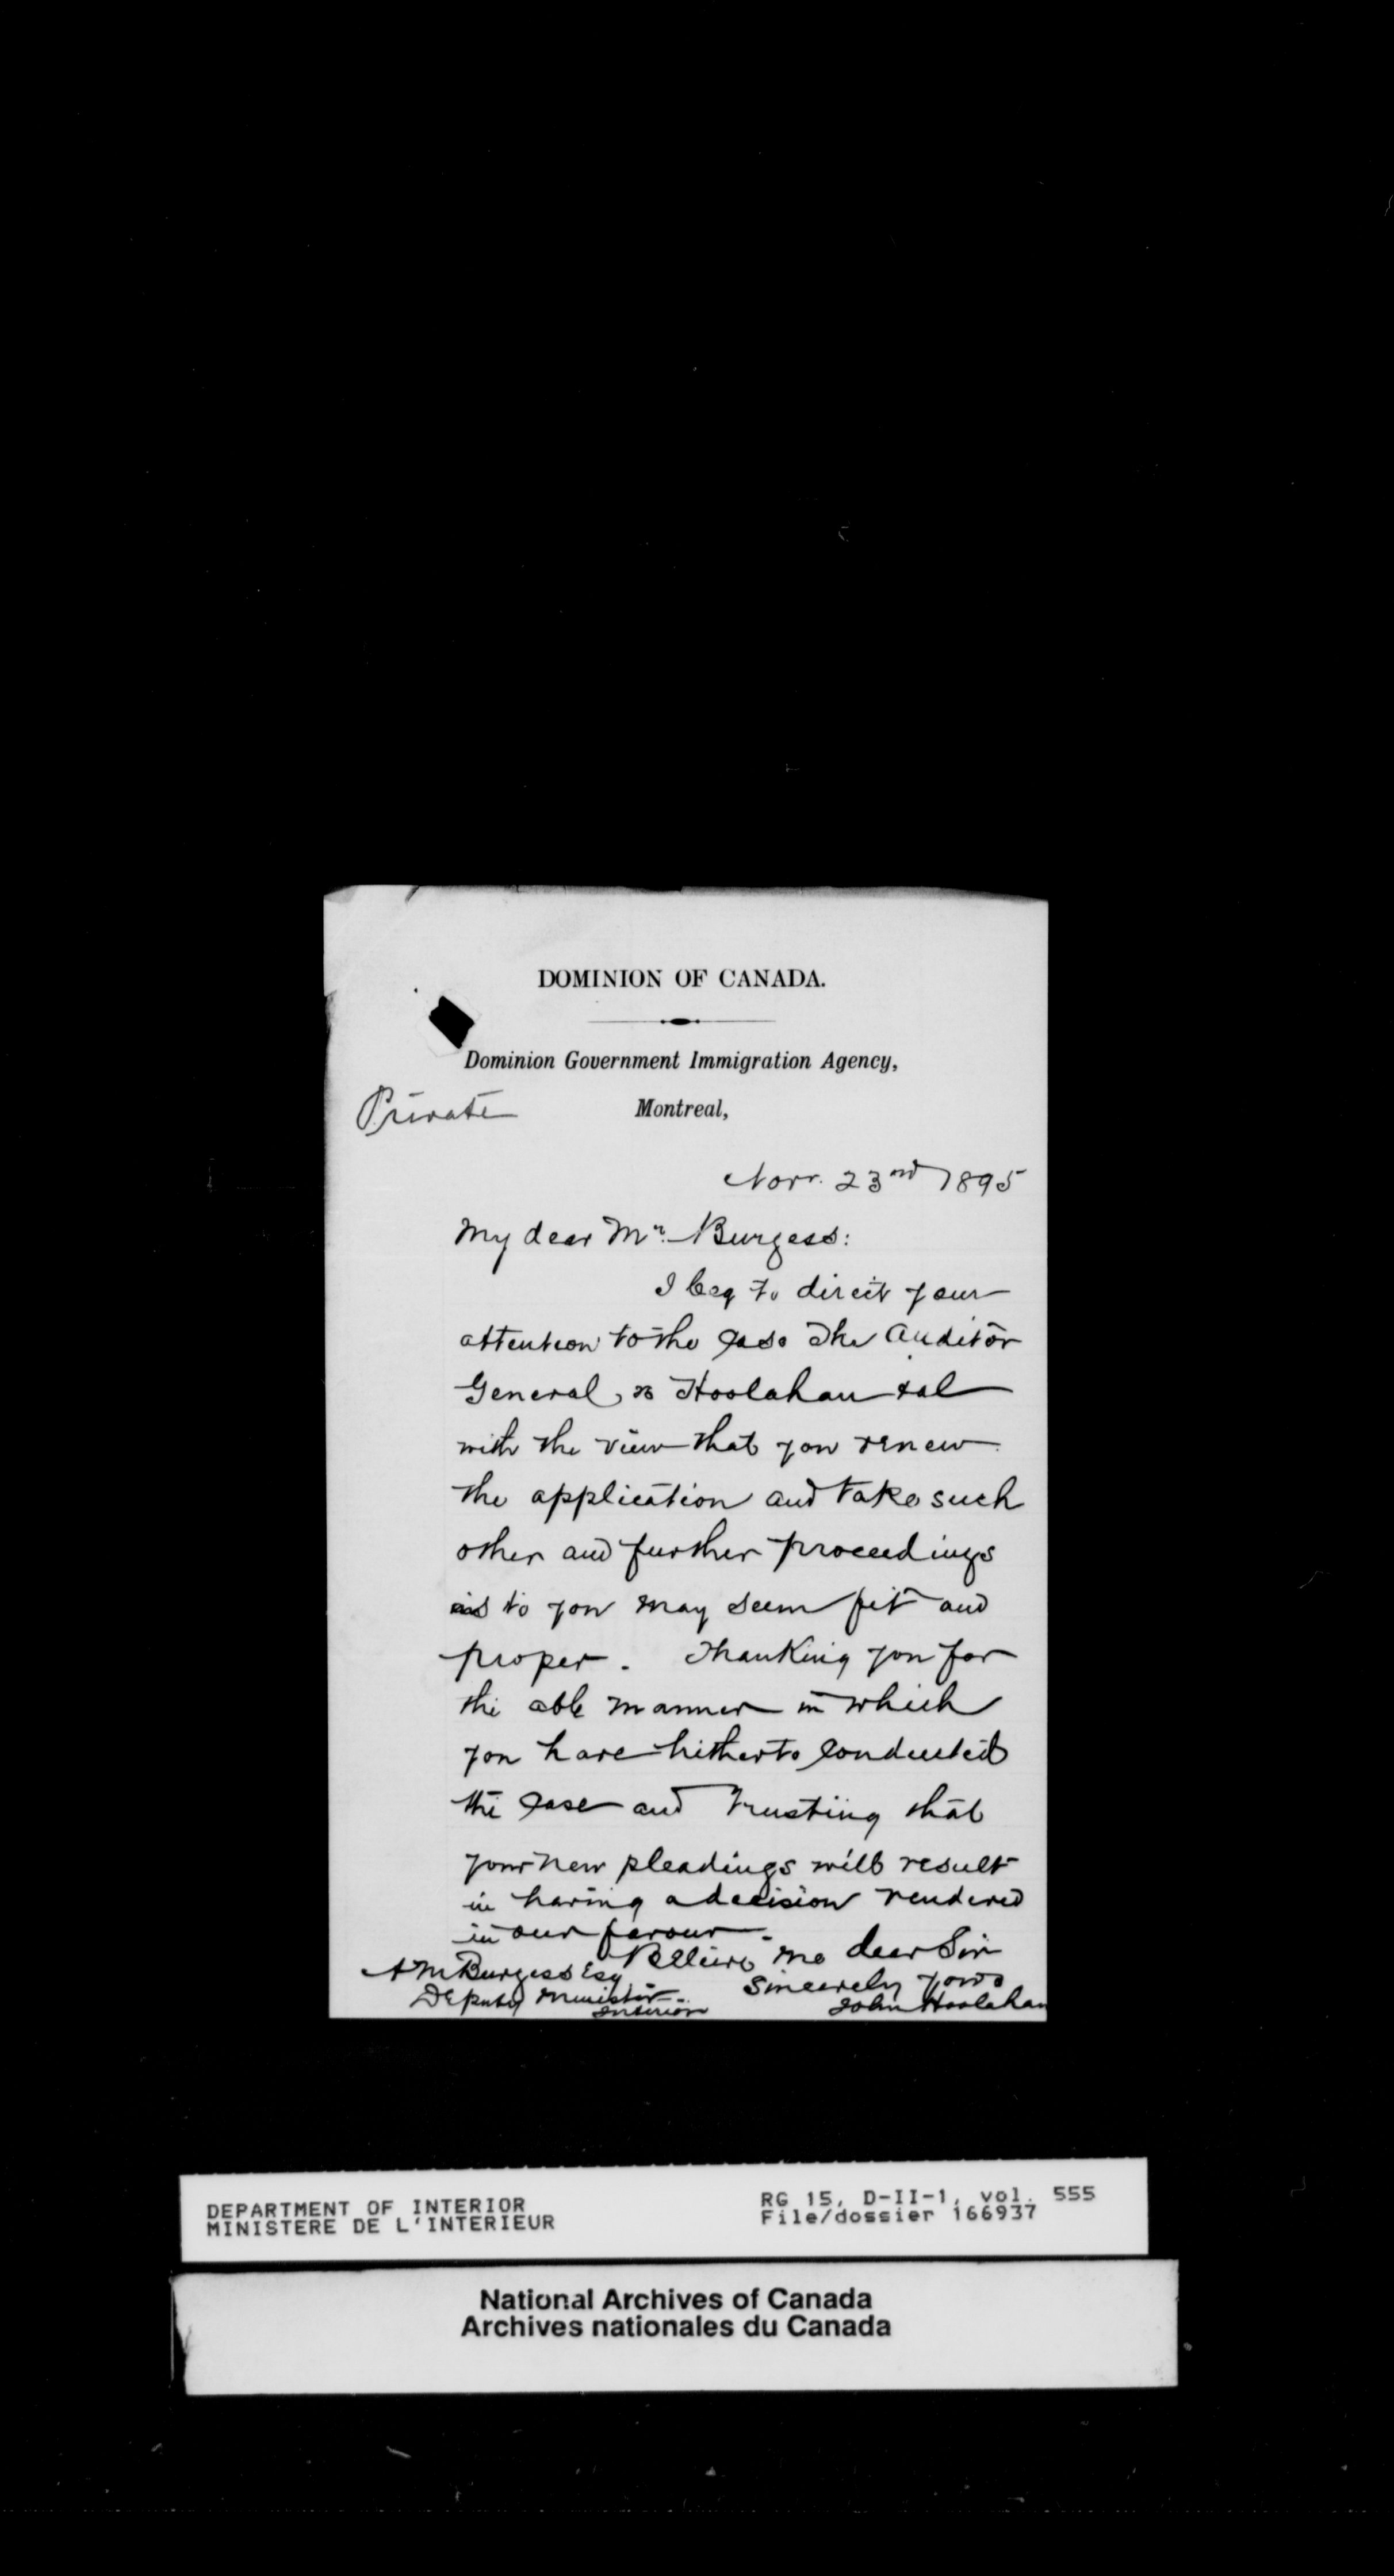 DOMINION OF CANADA.
Dominion Government Immigration Agency,
Private
Montreal,
Novr. 23rd 1895
My dear Mr. Burgess:
I beg to direct your
attention to the case The Auditor
General vs Hoolahan et al
with the view that you renew
the application and take such
other and further proceedings
as to you may seem fit and
proper. Thanking you for
the able manner in which
you have hitherto conducted
the case and trusting that
your new pleadings will result
in having a decision rendered
in our favour.
Believe me dear Sir
Sincerely yours
John Hoolahan
A M Burgess Esq
Deputy Minister
Interior
DEPARTMENT OF INTERIOR
MINISTERE DE L'INTERIEUR
RG 15, D-II-1, vol. 555
File/dossier 166937
National Archives of Canada
Archives nationales du Canada